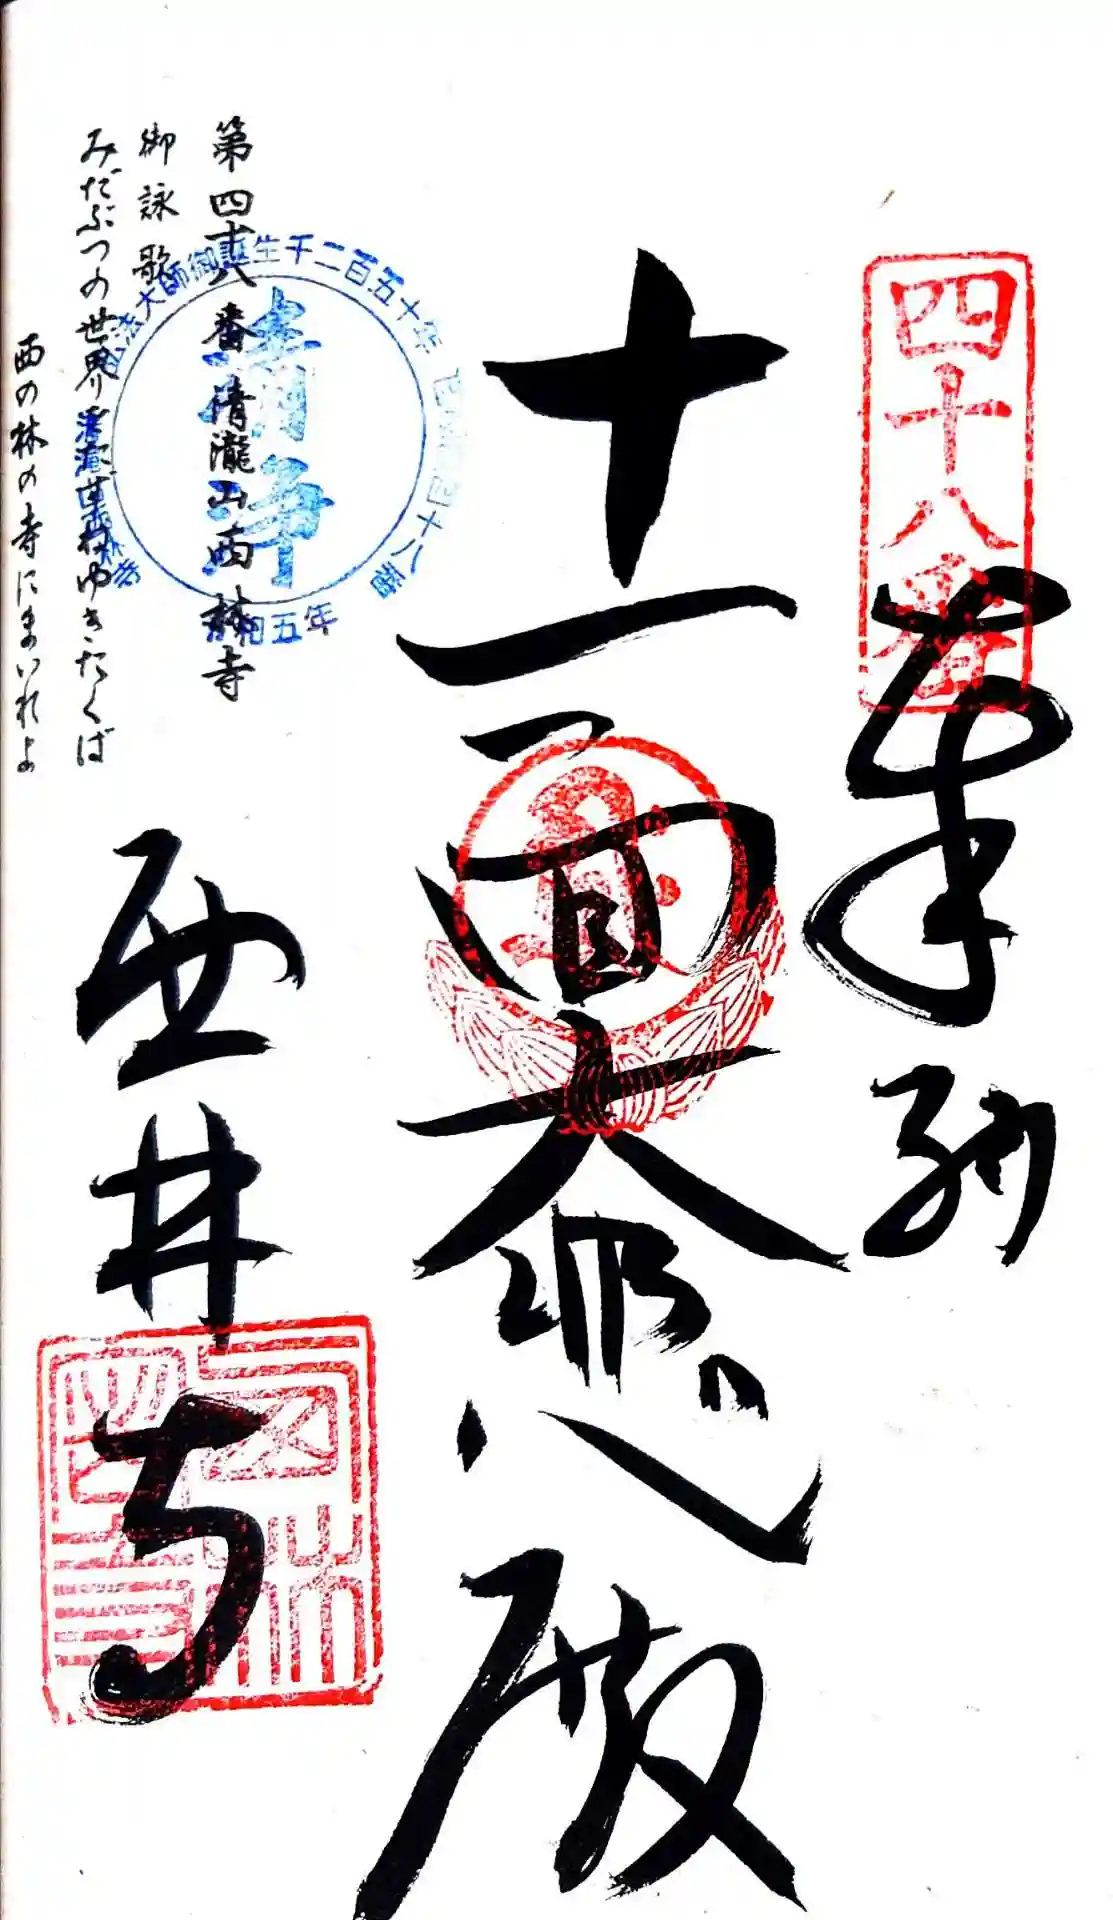 四十八番
奉納
十一面大悲殿
西林寺
第四十八番 清瀧山西林寺
御詠歌
みだぶつの世界をたずねゆきたくば
西の林の寺にまいれよ
弘法大師御誕生千二百五十年 四国第四十八番
西林寺
令和五年